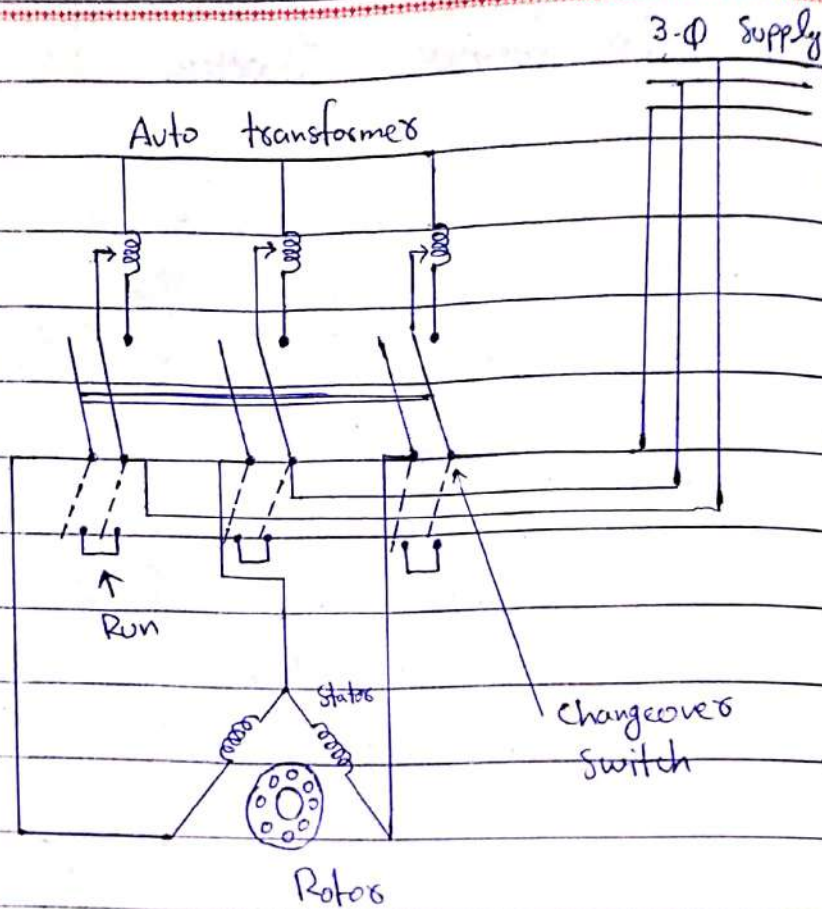 3-Φ Supply
Auto transformer
Run
Stator
Changeover
Switch
Rotor